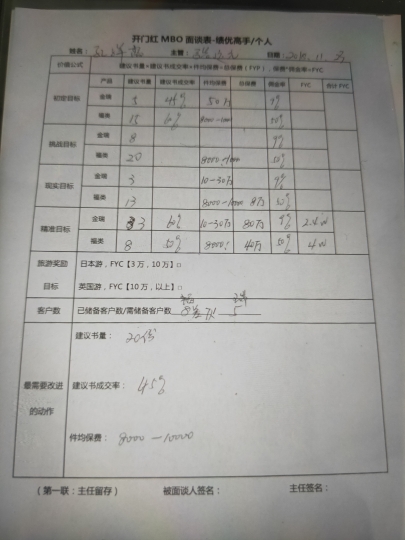 开门红 MBO 面谈表-绩优高手/个人
姓名： 主管： 日期：2015.11.
价值公式 建议书量*建议书成交率*件均保费=总保费（FYP），保费*佣金率=FYC
产品 建议书量 建议书成交率 件均保费 总保费 佣金率 FYC 合计 FYC
初定目标 金瑞 5 45% 50万 9%
福类 15 60% 50%
挑战目标 金瑞 8 9%
福类 20 50%
现实目标 金瑞 3 10-30万 9%
福类 13 8000-10000 8万 50%
精准目标 金瑞 3 60% 10-30万 80万 9% 2.4W
福类 8 50% 8000 40万 50% 4W
旅游奖励 日本游，FYC【3 万，10 万】□
目标 英国游，FYC【10 万，以上】□
客户数 已储备客户数/需储备客户数 5
建议书量： 20份
最需要改进的动作 建议书成交率： 45%
件均保费： 8000-10000
（第一联：主任留存） 被面谈人签名： 主任签名：